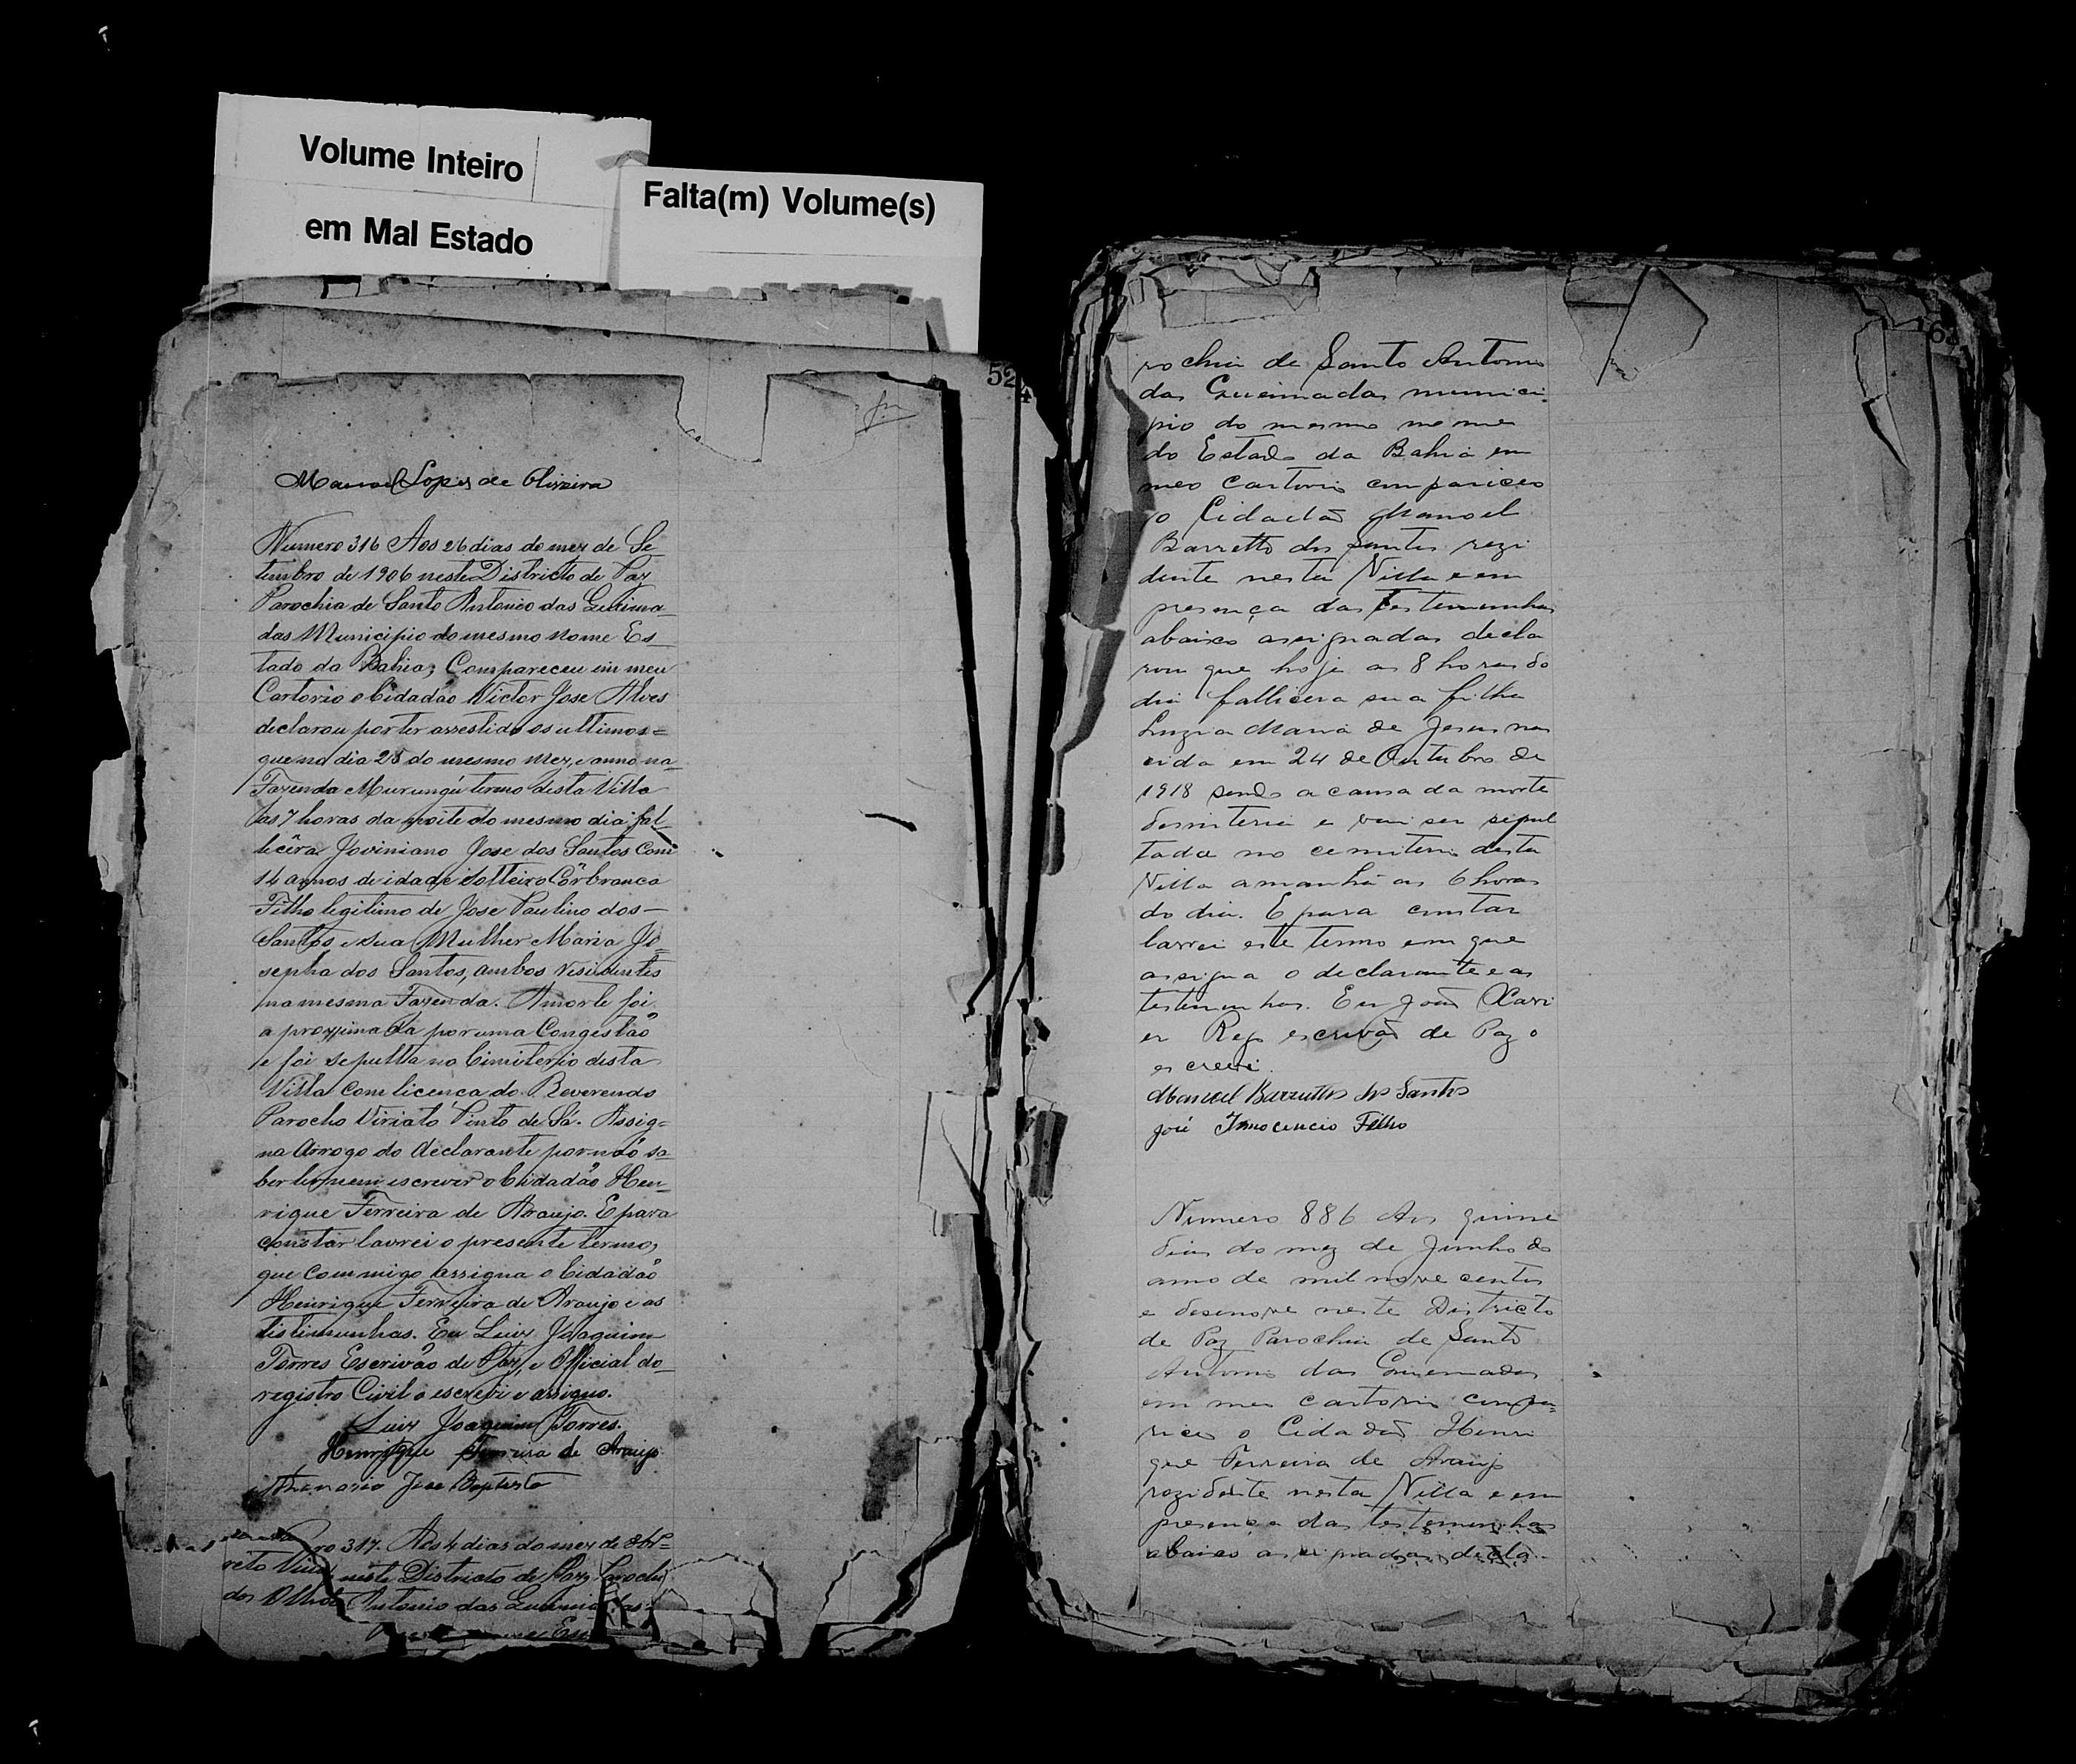 Volume Inteiro
em Mal Estado
Falta(m) Volume(s)
52
Manoel Lopes de Oliveira
Numero 316 Aos 26 dias do mez de Se
tembro de 1906 neste Districto de Paz
Parochia de Santo Antonio das Queima
das Municipio do mesmo nome Es
tado da Bahia; Compareceu em meu
Cartorio o Cidadão Victor Jose Alves
declarou por ter assestido os ultimos =
que no dia 25 do mesmo mez, e anno na
Fazenda Murungú termo desta Villa
as 7 horas da noite do mesmo dia fal
lecêra Joviniano Jose dos Santos Com
14 annos de idade Solteiro Côr branca
Filho legitimo de Jose Paulino dos —
Santos e sua Mulher Maria Jo=
sepha dos Santos, ambos residentes
na mesma Fazenda. A morte foi
a proximada por uma Congestão
e foi sepulta no Cimiterio desta
Villa com licenca do Reverendo
Parocho Viriato Pinto de Sá. Assig=
na Arrogo do declarante por não sa
ber ler nem escrever o Cidadão Hen
rique Ferreira de Araujo. E para
constar lavrei o presente termo,
que commigo assigna o Cidadão
Henrique Ferreira de Araujo e as
testimunhas. Eu Luiz Joaquim
Torres Escrivão de Paz, e Official do
registro Civil o escrevi e assigno.
Luiz Joaquim Torres.
Henrique Ferreira de Araujo
Jose Baptista
ro 317. Aos 4 dias do mez de
neste Districto de Paz Parochi
Antonio das Queimadas
rochia de Santo Antonio
das Queimadas munici
pio do mesmo nome
do Estado da Bahia em
meo Cartorio compariceo
o Cidadão Manoel
Barretto dos Santos rezi
dente nesta Villa e em
presença das testemunhas
abaixo assignadas decla
rou que hoje as 8 horas do
dia fallicera sua filha
Luzia Maria de Jesus nas
cida em 24 de Outubro de
1918 sendo a causa da morte
desinteria e vai ser sepul
tada no cemiterio desta
Villa amanhã as 6 horas
do dia. E para constar
lavrei este termo em que
assigna o declarante e as
testemunhas. Eu João Xavi
er Rego escrivão de Paz o
escrevi.
Manoel Barretto dos Santos
José Innocencio Filho
Numero 886 Aos quinse
dias do mez de Junho do
anno de mil nove centos
e desenove neste Districto
de Paz Parochia de Santo
Antonio das Queimadas
em meu cartorio compa=
riceo o Cidadão Henri
que Ferreira de Araujo
rezidente nesta Villa e em
presença das testemunhas
abaixo assignadas decla